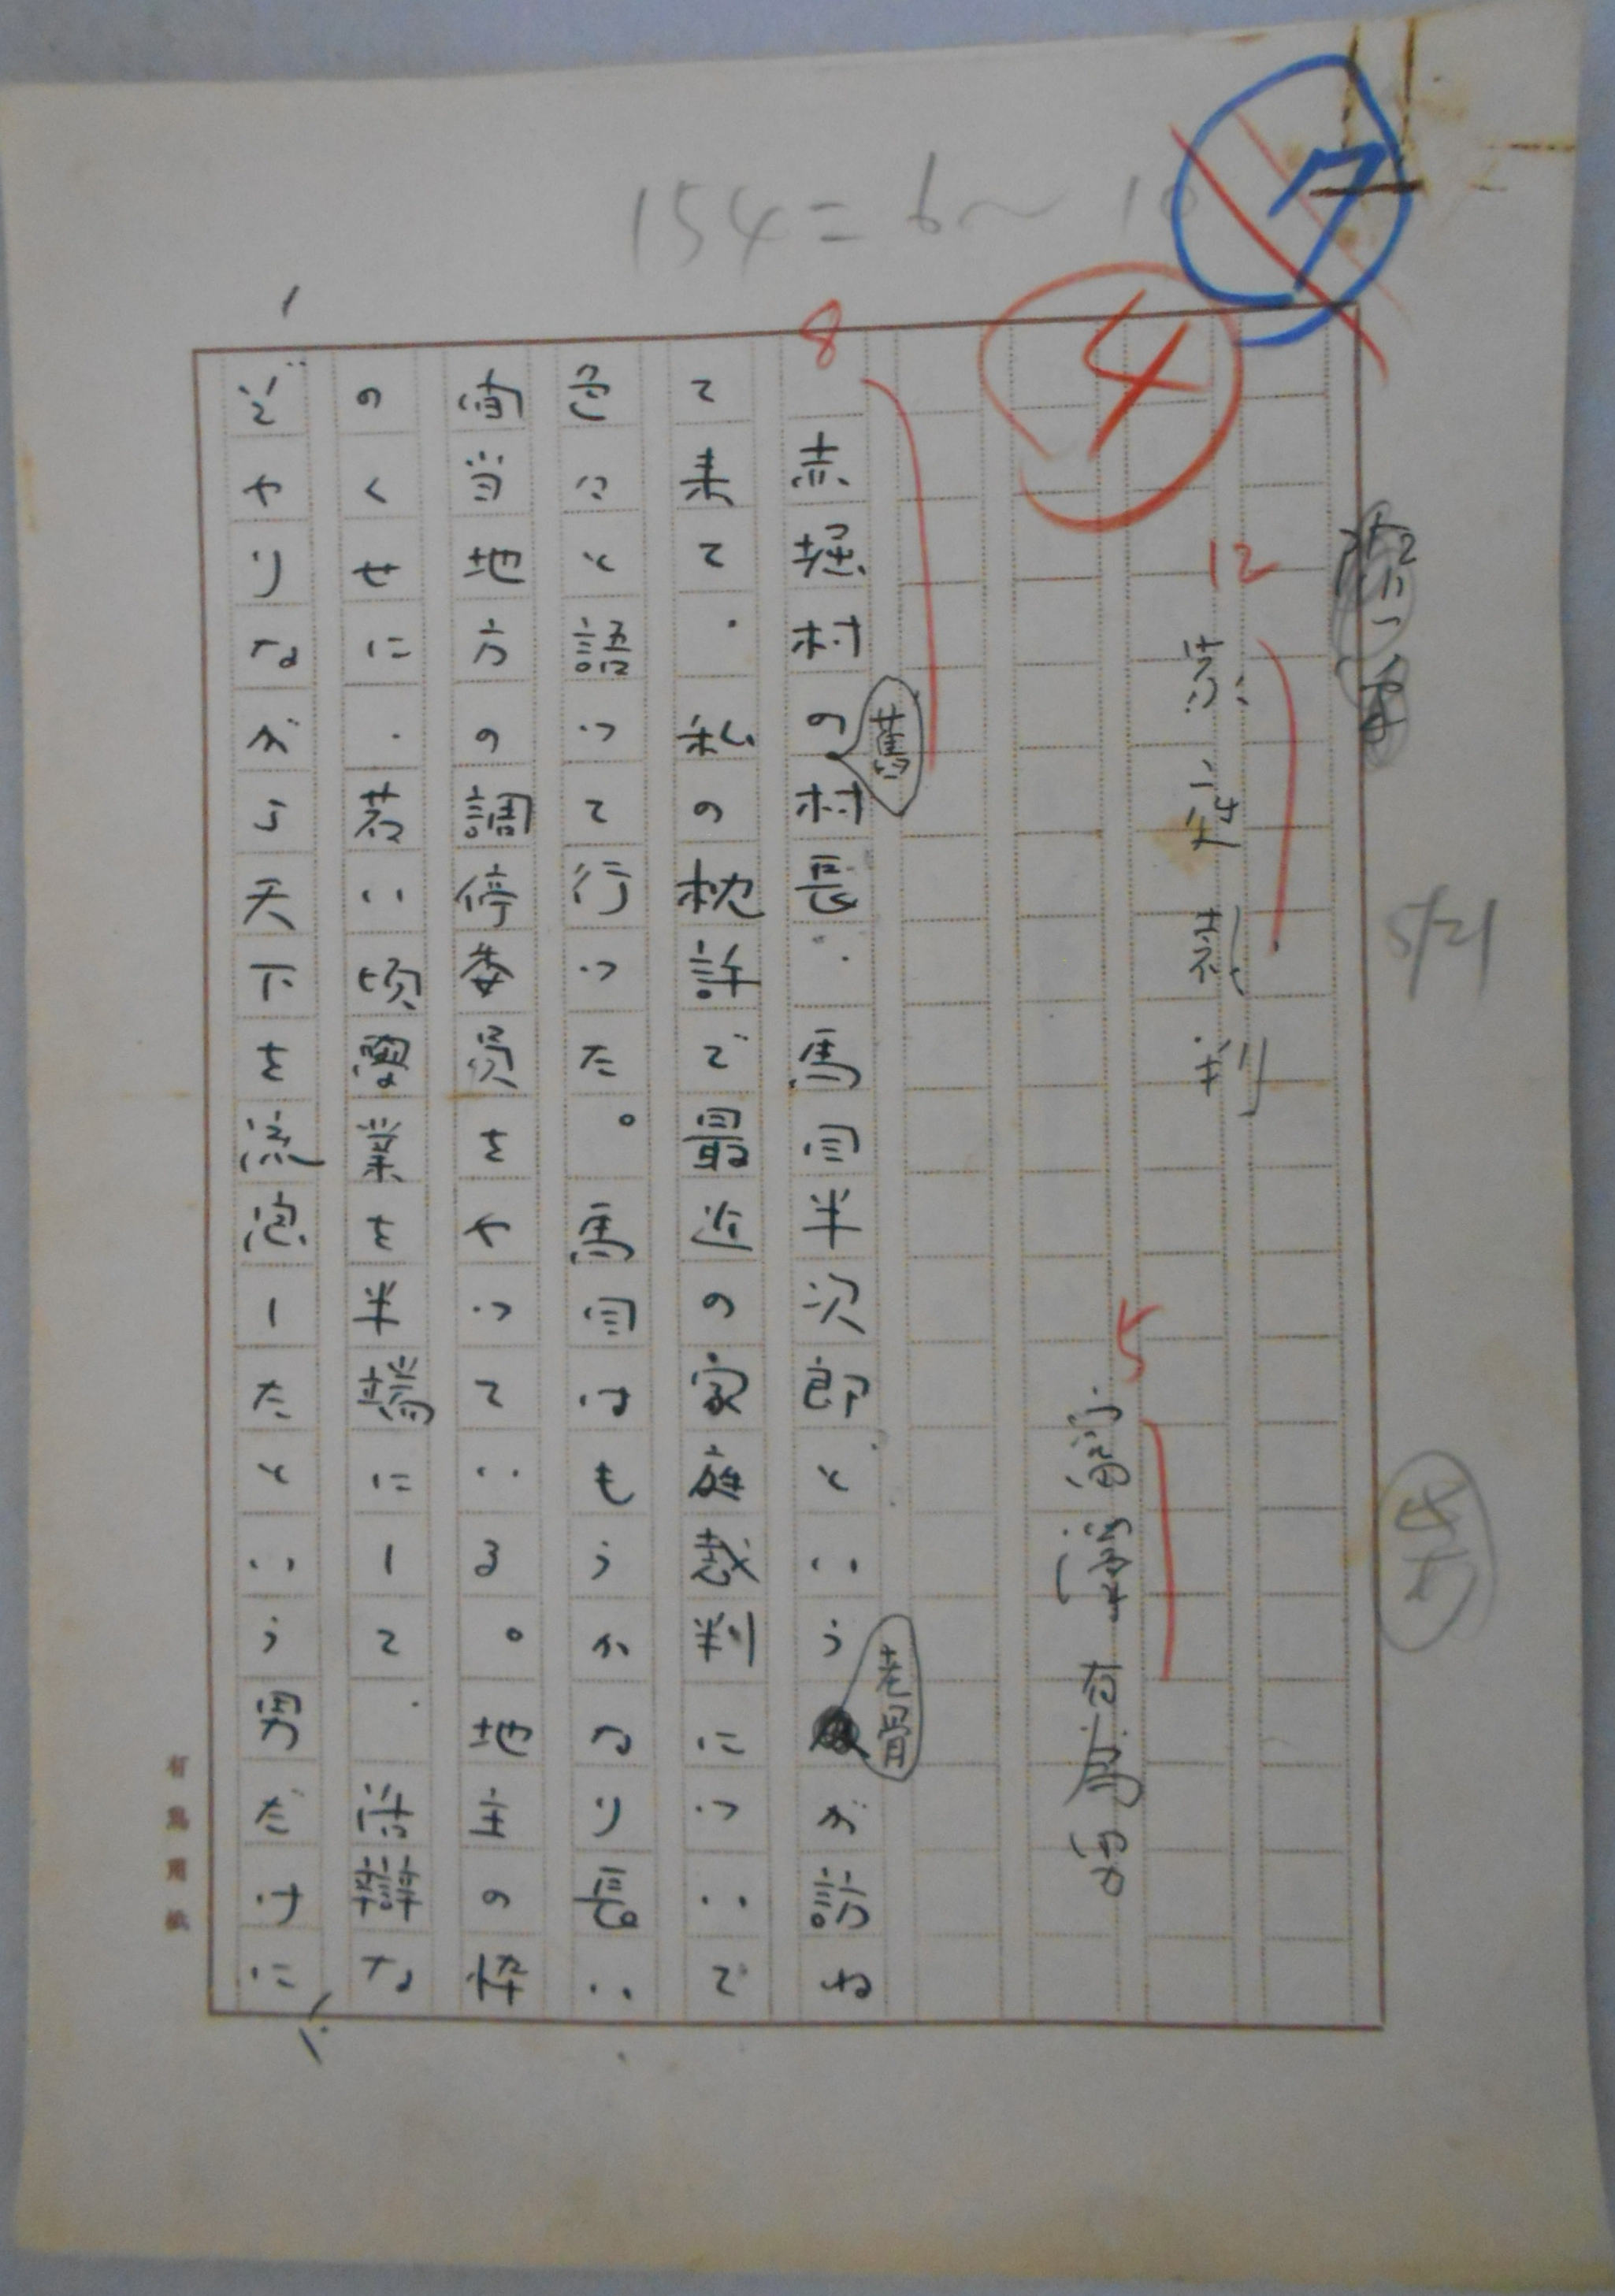 154＝6〜10
7
4
12
家庭裁判
5
5/21
8
赤堀村の舊村長、馬半次郎という老骨が訪ね
て来て、私の枕許で最近の家庭裁判についで
色々と語って行った。馬はもうかなり長い
間当地方の調停委員をやっている。地主の忰
のくせに、若い頃學業を半端にして、活辯な
ぞやりながら天下を流泡したという男だけに